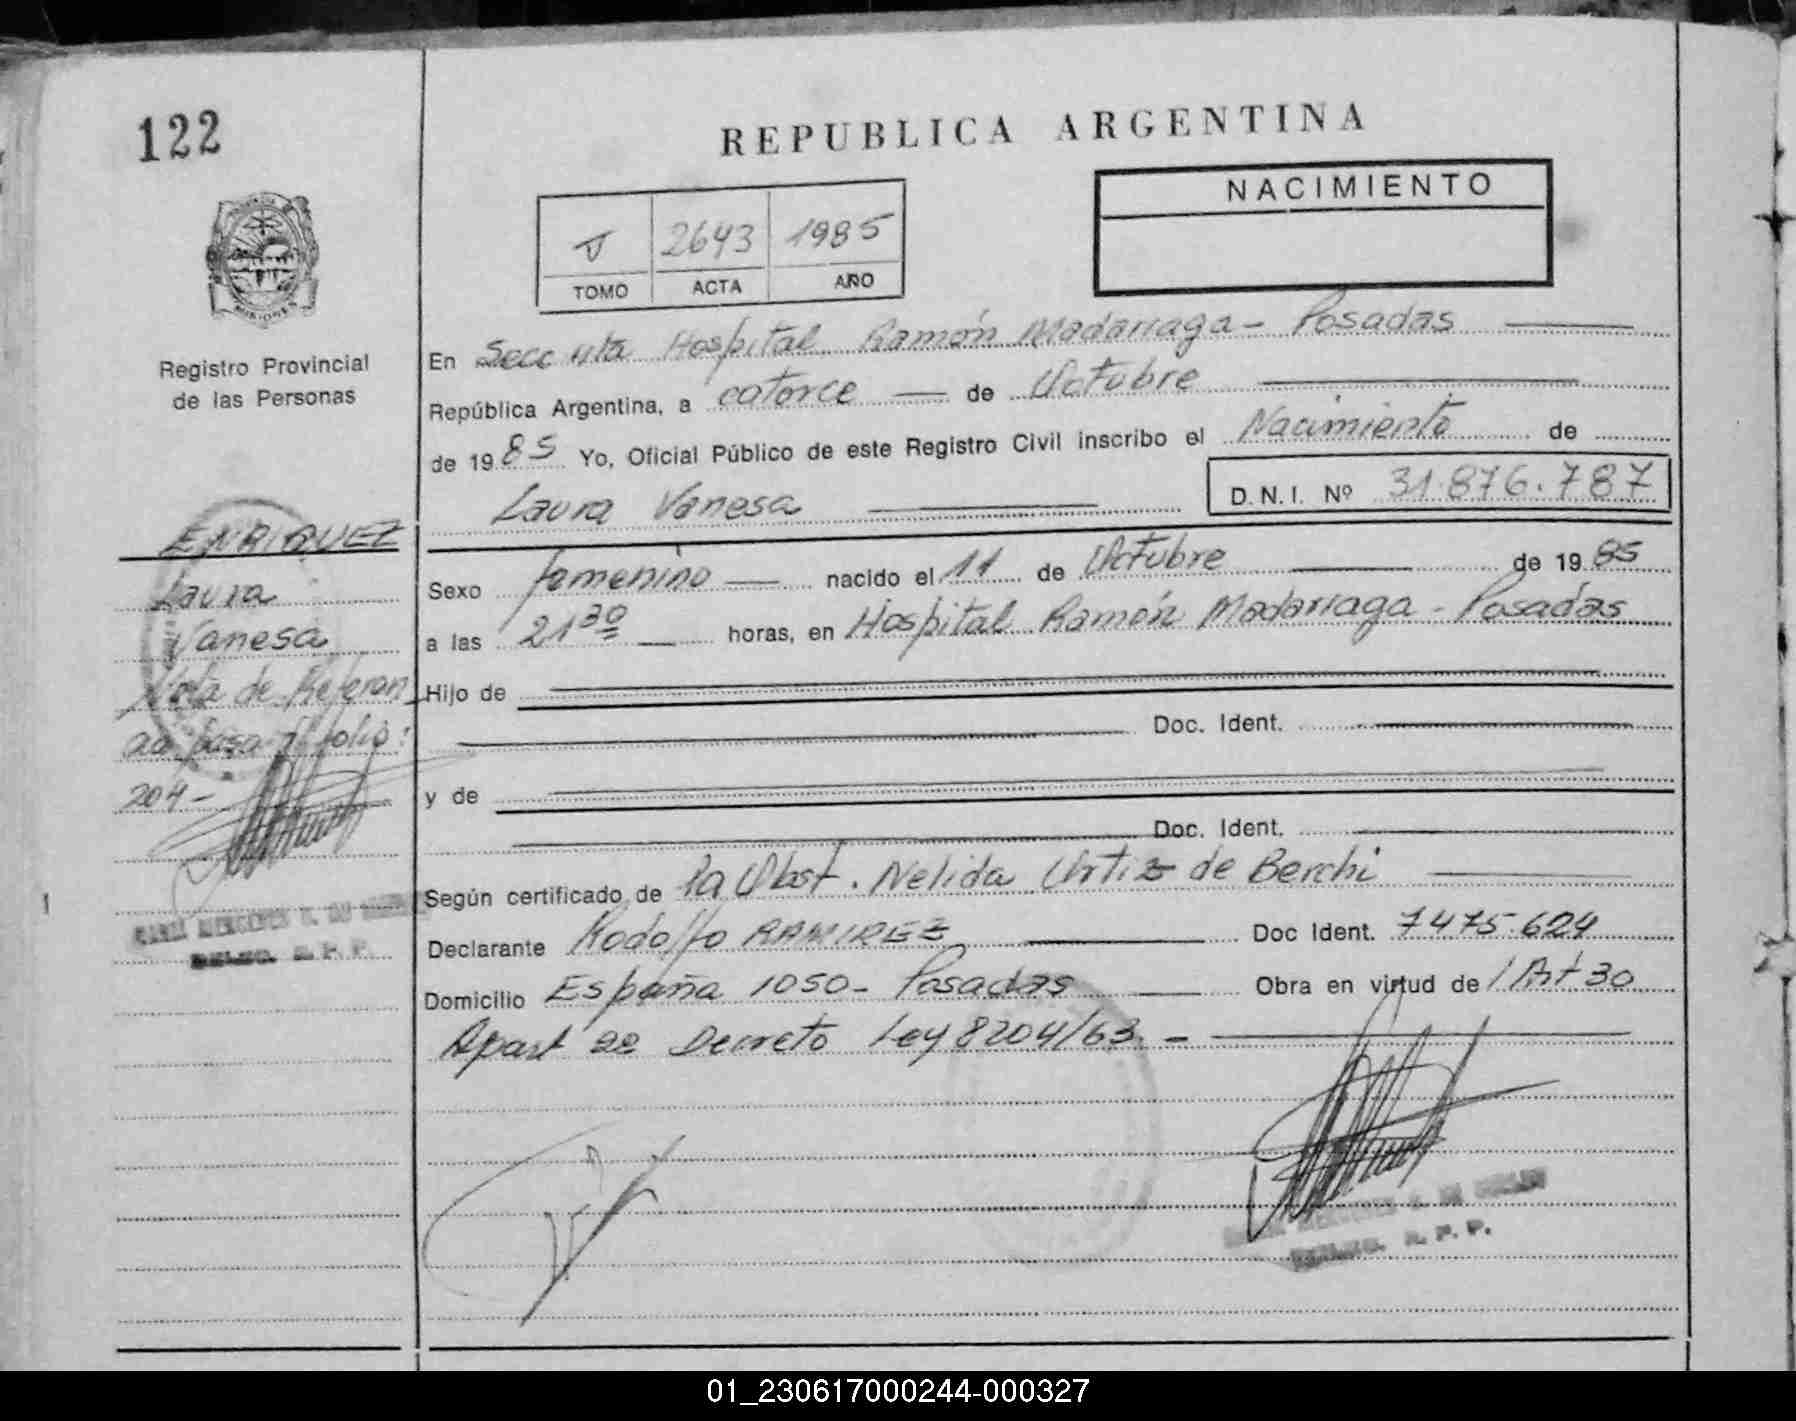 122
REPUBLICA ARGENTINA
NACIMIENTO
2643 1985
TOMO ACTA AÑO
MISIONES
Registro Provincial
de las Personas
En Secc 4ta Hospital Ramón Madariaga - Posadas
República Argentina, a catorce de Octubre
de 1985 Yo, Oficial Público de este Registro Civil inscribo el Nacimiento de
Laura Vanesa
D.N.I. Nº 31.876.787
ENRIQUEZ
Laura
Vanesa
Nota de Referen
pasa al folio:
204-
Sexo femenino nacido el 11 de Octubre de 1985
a las 21 30 horas, en Hospital Ramón Madariaga - Posadas
Hijo de
Doc. Ident.
y de
Doc. Ident.
Según certificado de la Obst. Nelida Ortiz de Berchi
Declarante Rodolfo RAMIREZ Doc Ident. 7475.624
Domicilio España 1050- Posadas Obra en virtud de l Art 30
Apart 2º Decreto Ley 8204/63.-
R. P. P.
R. P. P.
01_230617000244-000327